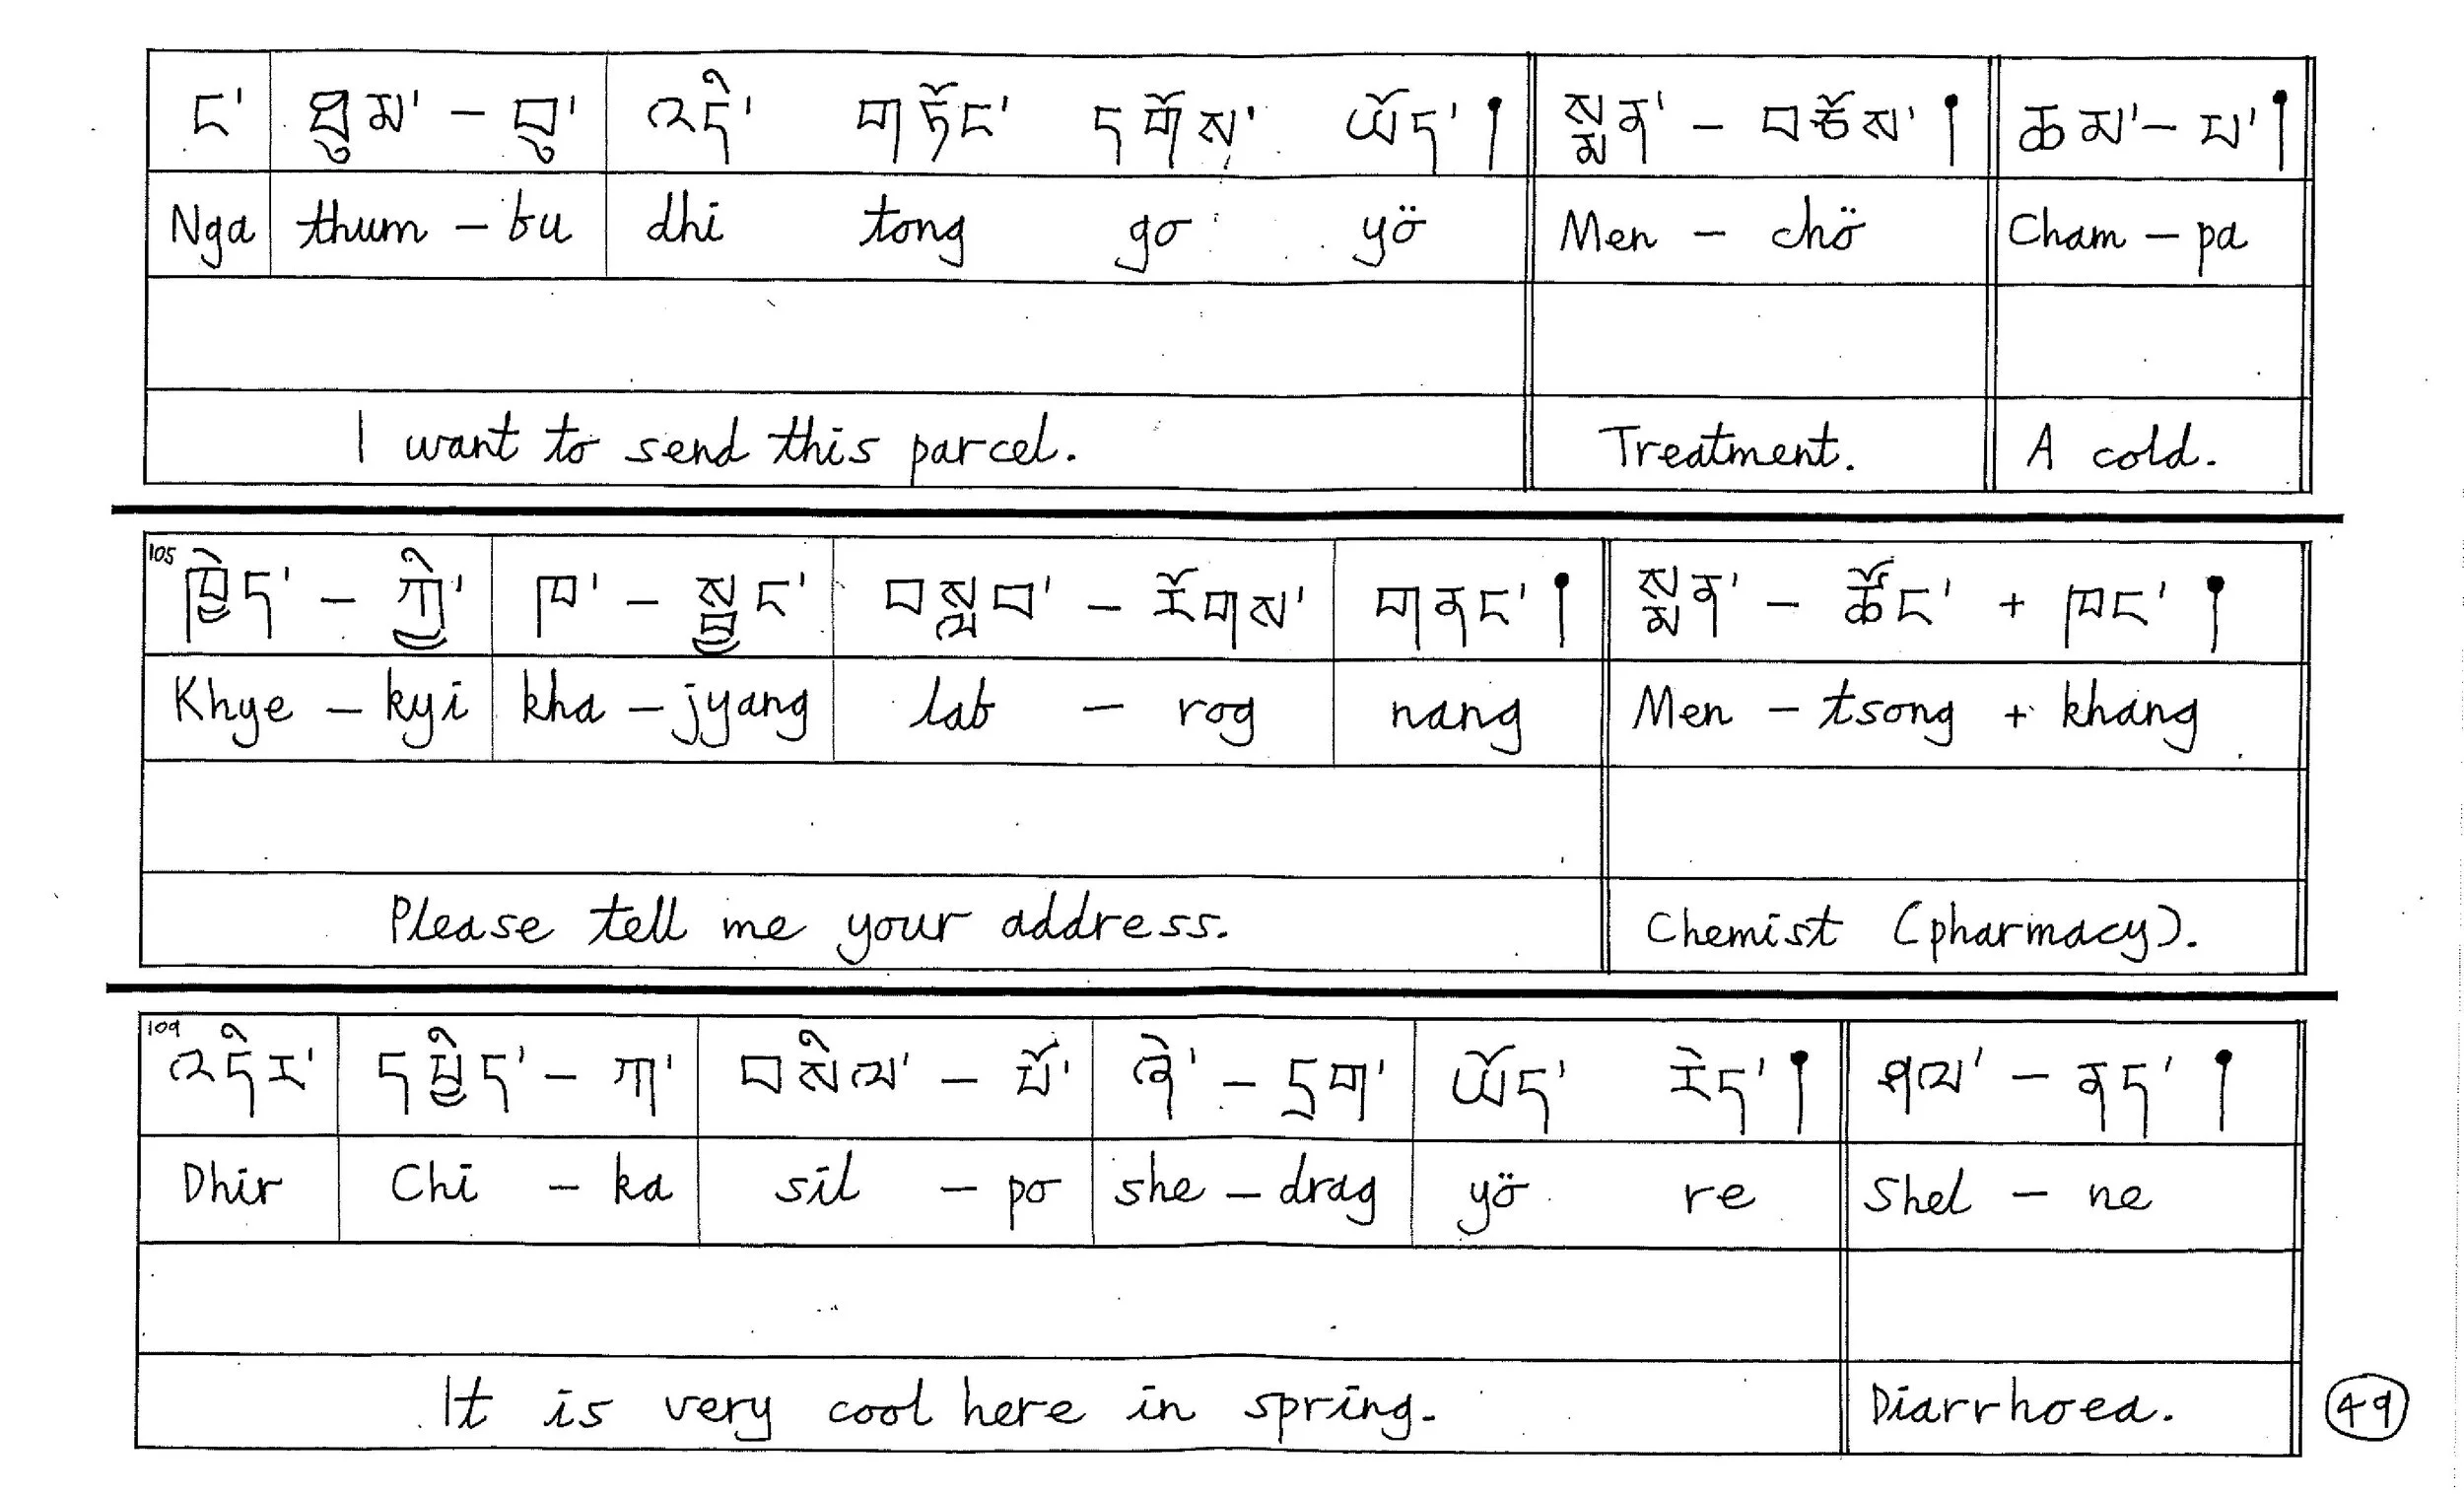 ང་ ཐུམ་ - བུ་ འདི་ གཏོང་ དགོས་ ཡོད་། སྨན་ - བཅོས་། ཆམ་ - པ་།
Nga thum - bu dhi tong go yö Men - chö Cham - pa
I want to send this parcel. Treatment. A cold.
105 ཁྱེད་ - ཀྱི་ ཁ་ - སྦྱང་ བསླབ་ - རོགས་ གནང་། སྨན་ - ཚོང་ + ཁང་།
Khye - kyi kha - jyang lab - rog nang Men - tsong + khang
Please tell me your address. Chemist (pharmacy).
109 འདིར་ དཔྱིད་ - ཀ་ བསིལ་ - པོ་ ཞེ་ - དྲག་ ཡོད་ རེད་། ཤལ་ - ནད་།
Dhir Chi - ka sil - po she - drag yö re Shel - ne
It is very cool here in spring. Diarrhoea.
49